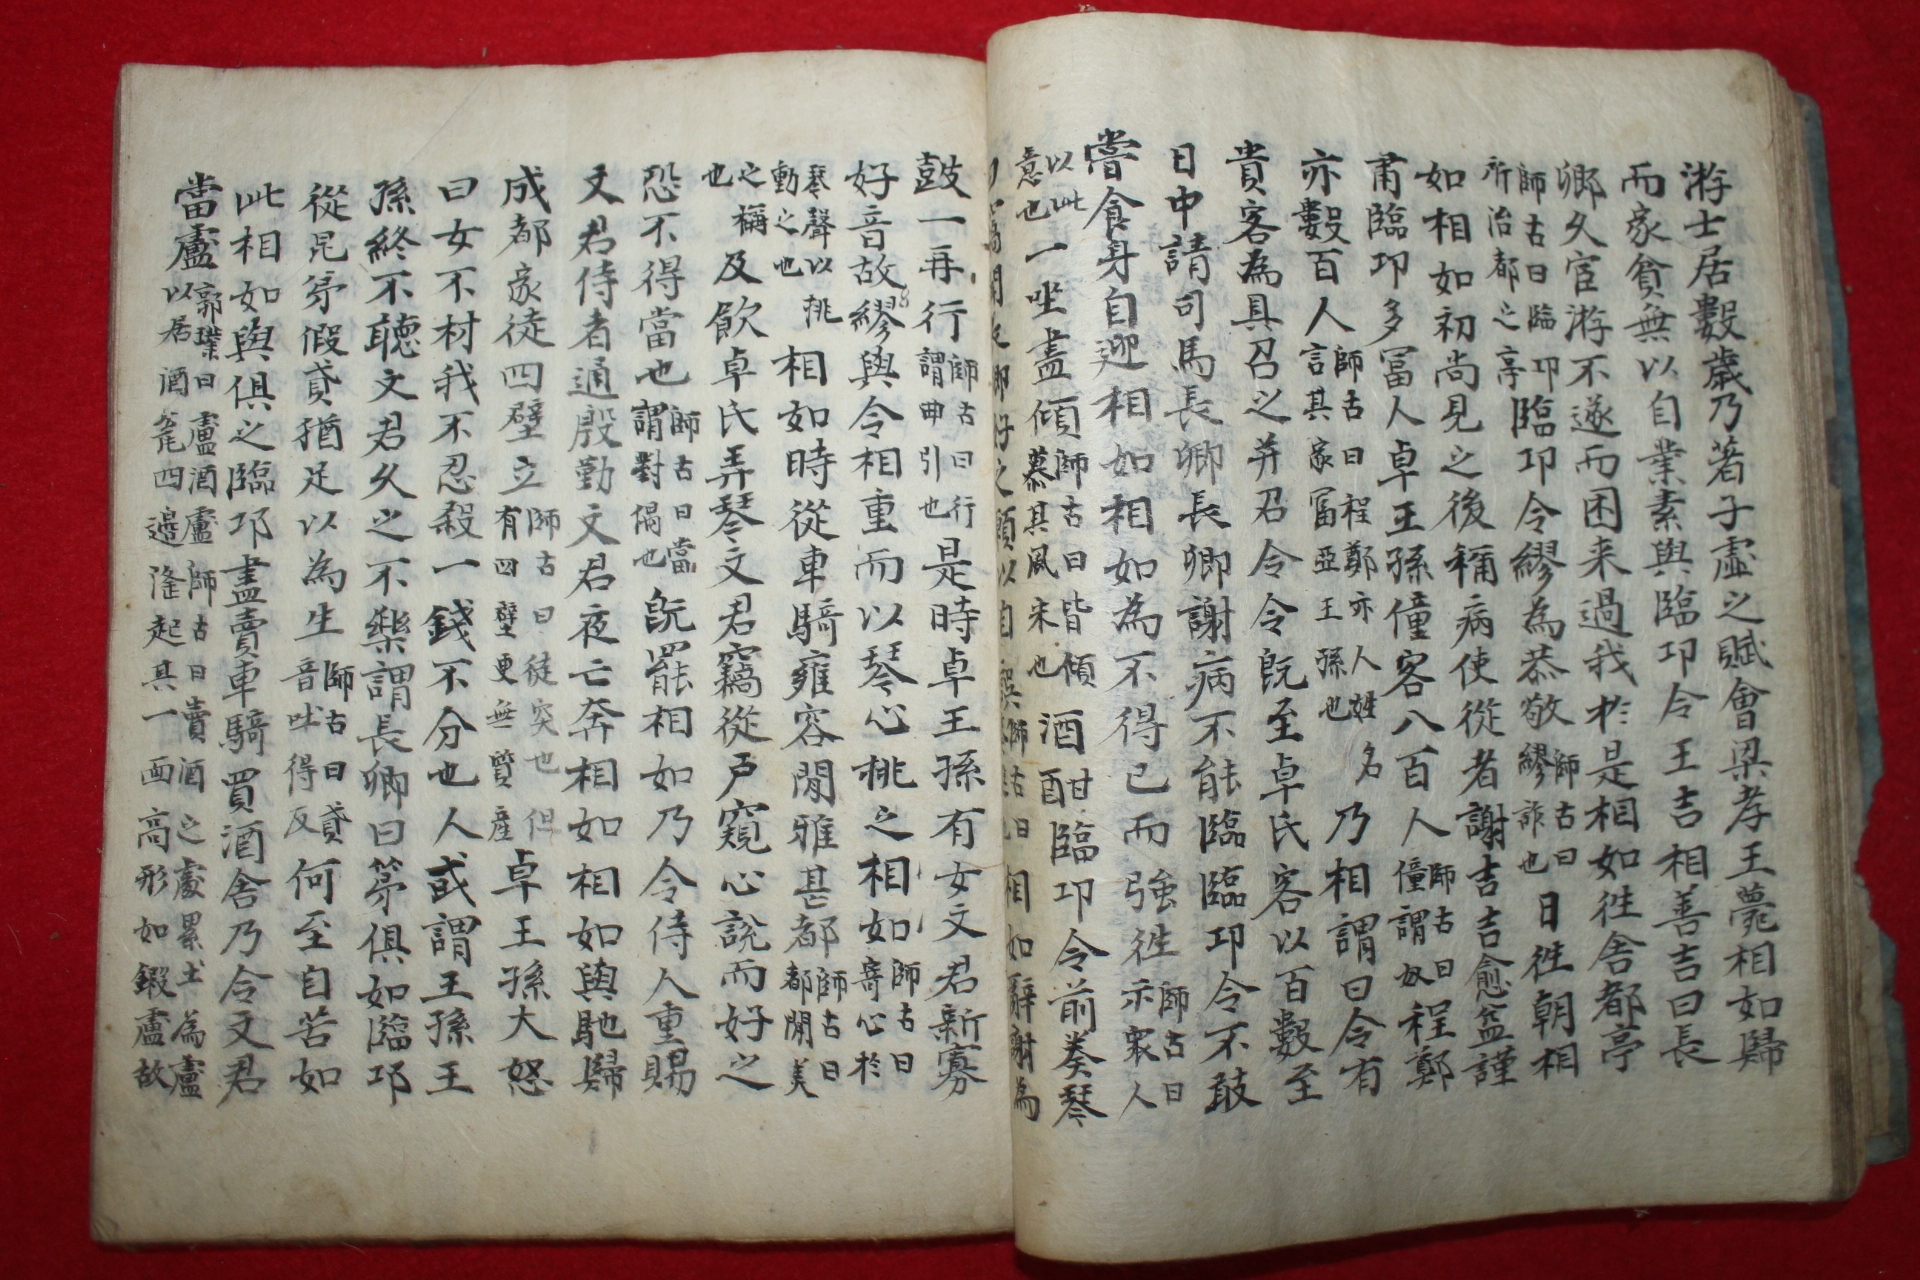 游士居數歲乃著子虛之賦會梁孝王薨相如歸
而家貧無以自業素與臨邛令王吉相善吉曰長
卿久宦游不遂而困来過我於是相如徃舍都亭
師古曰臨邛所治都之亭臨邛令繆為恭敬師古曰繆詐也日徃朝相
如相如初尚見之後稱病使從者謝吉吉愈益謹
肅臨邛多冨人卓王孫僮客八百人師古曰僮謂奴程鄭
亦數百人師古曰程鄭亦人姓名言其家冨亞王孫也乃相謂曰令有
貴客為具召之并召令令旣至卓氏客以百數至
日中請司馬長卿長卿謝病不能臨臨邛令不敢
嘗食身自迎相如相如為不得已而強徃師古曰示衆人
以此意也一坐盡傾師古曰皆傾慕其風宋也酒酣臨邛令前奏琴
相如辭謝為
鼓一再行師古曰行謂曲引也是時卓王孫有女文君新寡
好音故繆與令相重而以琴心桃之相如師古曰寄心於
琴聲以挑動之也相如時從車騎雍容閒雅甚都師古曰都閒美
之稱也及飲卓氏弄琴文君竊從戸窺心説而好之
恐不得當也師古曰當謂對偶也旣罷相如乃令侍人重賜
文君侍者通殷勤文君夜亡奔相如相如與馳歸
成都家徒四壁立師古曰徒突也但有四壁更無質産卓王孫大怒
曰女不材我不忍殺一錢不分也人或謂王孫王
孫終不聽文君久之不樂謂長卿曰苐俱如臨邛
從昆苐假貣猶足以為生師古曰貣音吐得反何至自苦如
此相如與俱之臨邛盡賣車騎買酒舍乃令文君
當盧郭璞曰盧酒盧師古曰賣酒之處累土為盧以居酒瓮四邊隆起其一面高形如鍜盧故